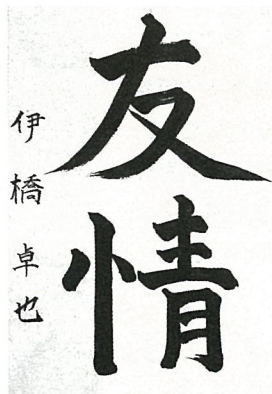 友情
伊橋卓也